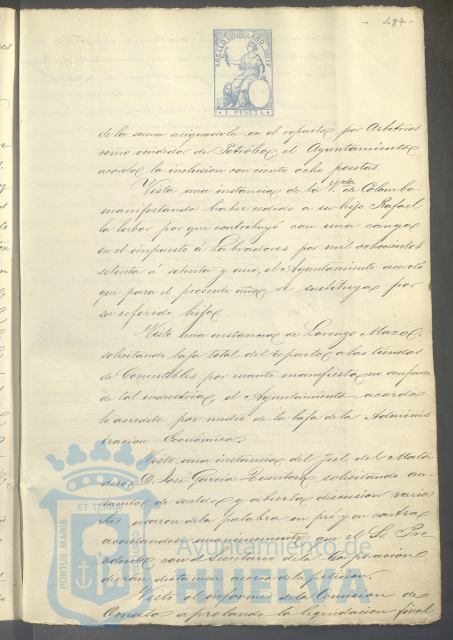 - 487 -
SELLO JUDICIAL AÑO 1871
1 PESETA
de la suma asignadole en el reparto por Arbitrios
como vendedor de Petroleo, el Ayuntamiento
acordó la inclusion con ciento ocho pesetas.
Vista una instancia de la Vda. de Colombo
manifestando haber cedido a su hijo Rafael
la labor por que contribuyó con una carga
en el impuesto á Labradores por mil ochocientos
setenta á setenta y uno, el Ayuntamiento acordó
que para el presente año, se sustituya por
su referido hijo.
Vista una instancia de Lorenzo
solicitando baja total del reparto a las tiendas
de Comestibles por cuanto manifiesta no ocuparse
de tal industria, el Ayuntamiento acordó
lo acredite por medio de la baja de la Adminis
tracion Económica.
Vista una instancia del Fiel del Mata
dero D. José Garcia Quintero solicitando au
mento de sueldo y abierta discusion varios
Sres. usaron de la palabra en pró y en contra
acordandose unanimemente que el Sr. Pre
sidente con el Secretario de la Corporacion
dieran dictamen acerca de la peticion.
Visto el informe de la Comision de
Ornato aprobando la liquidacion final
ET TERRAE
PORTUS MARIS
Ayuntamiento de
HUELVA